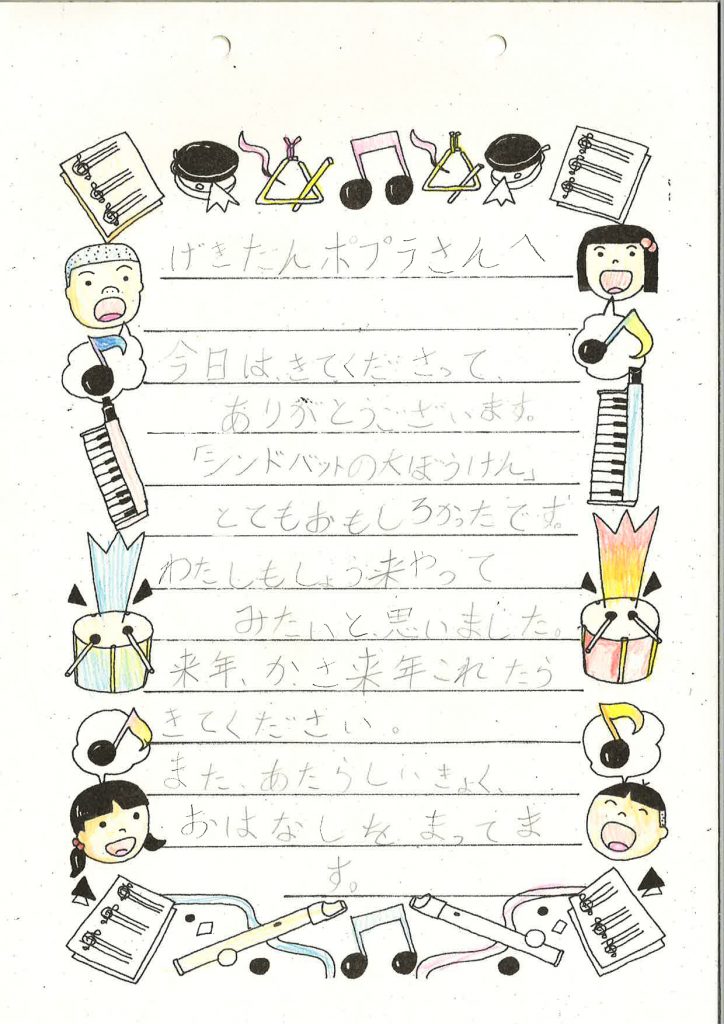 げきだんポプラさんへ
今日は、きてくださって、
ありがとうございます。
「シンドバットの大ぼうけん」
とてもおもしろかったです。
わたしもしょう来やって
みたいと、思いました。
来年、かさ来年これたら
きてください。
また、あたらしいきょく、
おはなしをまってま
す。